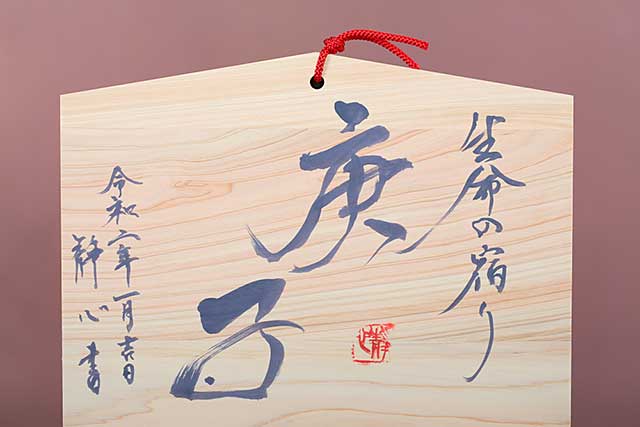 生命の宿り
庚子
令和二年一月吉日
静心書